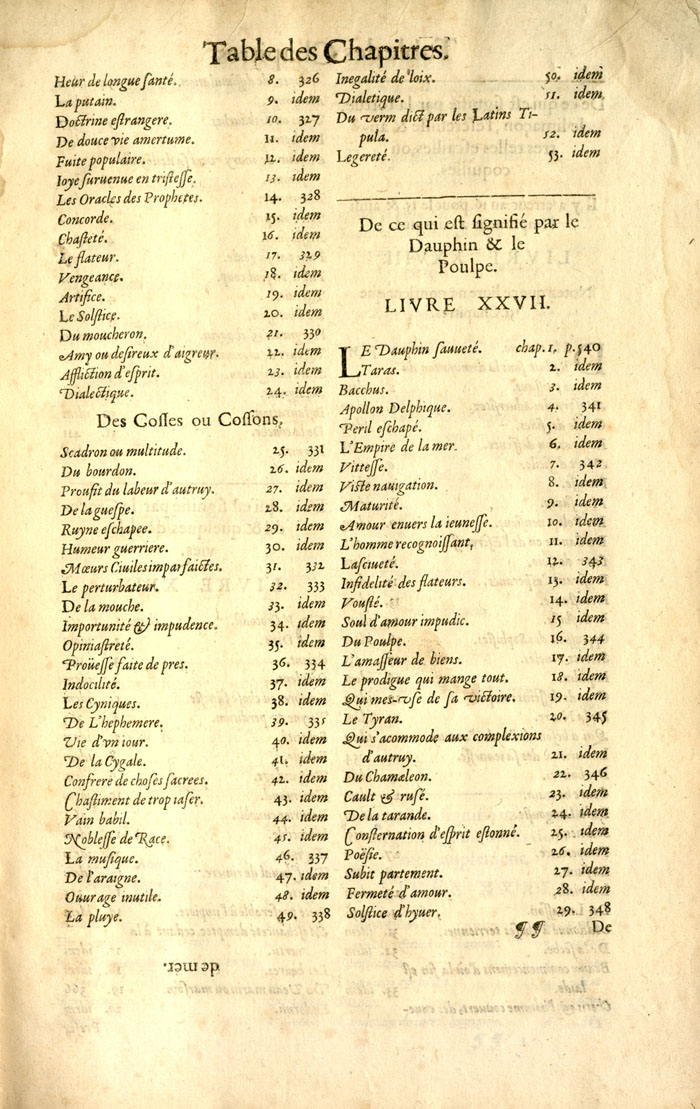 Table des Chapitres.
Heur de longue ſanté. 8. 326
La putain. 9. idem
Doctrine eſtrangere. 10. 327
De douce vie amertume. 11. idem
Fuite populaire. 12. idem
Ioye ſuruenue en triſteſſe. 13. idem
Les Oracles des Prophetes. 14. 328
Concorde. 15. idem
Chaſteté. 16. idem
Le flateur. 17. 329
Vengeance. 18. idem
Artifice. 19. idem
Le Solſtice. 20. idem
Du moucheron. 21. 330
Amy ou deſireux d'aigreur. 22. idem
Affliction d'eſprit. 23. idem
Dialectique. 24. idem
Des Coſſes ou Coſſons.
Scadron ou multitude. 25. 331
Du bourdon. 26. idem
Proufit du labeur d'autruy. 27. idem
De la gueſpe. 28. idem
Ruyne eſchapee. 29. idem
Humeur guerriere. 30. idem
Mœurs Ciuiles imparfaictes. 31. 332
Le perturbateur. 32. 333
De la mouche. 33. idem
Importunité & impudence. 34. idem
Opiniaſtreté. 35. idem
Proüeſſe faite de pres. 36. 334
Indocilité. 37. idem
Les Cyniques. 38. idem
De L'hephemere. 39. 335
Vie d'vn iour. 40. idem
De la Cygale. 41. idem
Confrere de choſes ſacrees. 42. idem
Chaſtiment de trop iaſer. 43. idem
Vain babil. 44. idem
Nobleſſe de Race. 45. idem
La muſique. 46. 337
De l'araigne. 47. idem
Ouurage inutile. 48. idem
La pluye. 49. 338
Inegalité de loix. 50. idem
Dialetique. 51. idem
Du verm dict par les Latins Ti-
pula. 52. idem
Legereté. 53. idem
De ce qui eſt ſignifié par le
Dauphin & le
Poulpe.
LIVRE XXVII.
LE Dauphin ſauueté. chap. 1. p. 540
Taras. 2. idem
Bacchus. 3. idem
Apollon Delphique. 4. 341
Peril eſchapé. 5. idem
L'Empire de la mer. 6. idem
Vitteſſe. 7. 342
Viſte nauigation. 8. idem
Maturité. 9. idem
Amour enuers la ieuneſſe. 10. idem
L'homme recognoiſſant, 11. idem
Laſciueté. 12. 343
Infidelité des flateurs. 13. idem
Vouſté. 14. idem
Soul d'amour impudic. 15 idem
Du Poulpe. 16. 344
L'amaſſeur de biens. 17. idem
Le prodigue qui mange tout. 18. idem
Qui mes-vſe de ſa victoire. 19. idem
Le Tyran. 20. 345
Qui s'acommode aux complexions
d'autruy. 21. idem
Du Chamæleon. 22. 346
Cault & ruſé. 23. idem
De la tarande. 24. idem
Conſternation d'eſprit eſtonné. 25. idem
Poëſie. 26. idem
Subit partement. 27. idem
Fermeté d'amour. 28. idem
Solſtice d'hyuer. 29. 348
¶¶ De
de mer.